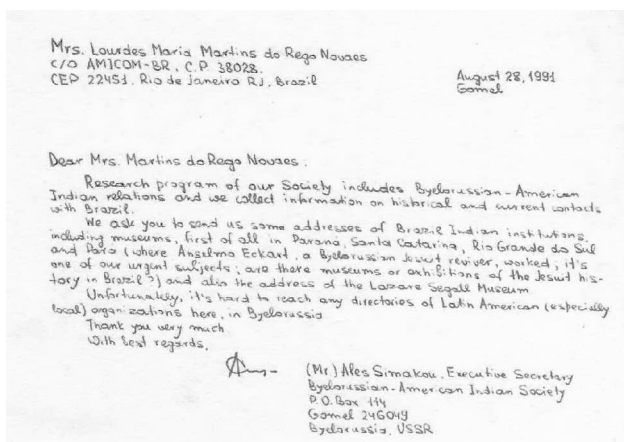 Mrs. Lourdes Maria Martins do Rego Novaes
c/o AMICOM-BR, C.P. 38028.
CEP 22451. Rio de Janeiro RJ, Brazil
August 28, 1991
Gomel
Dear Mrs. Martins do Rego Novaes.
Research program of our Society includes Byelorussian-American
Indian relations and we collect information on historical and current contacts
with Brazil.
We ask you to send us some addresses of Brazil Indian institutions,
including museums, first of all in Parana, Santa Catarina, Rio Grande do Sul
and Para (where Anselmo Eckart, a Byelorussian Jesuit reviver, worked; it's
one of our urgent subjects; are there museums or exhibitions of the Jesuit his-
tory in Brazil?) and also the address of the Lazare Segall Museum.
Unfortunately, it's hard to reach any directories of Latin American (especially
local) organizations here, in Byelorussia
Thank you very much.
With best regards,
(Mr.) Ales Simakou, Executive Secretary
Byelorussian-American Indian Society
P.O. Box 114
Gomel 246049
Byelorussia, USSR